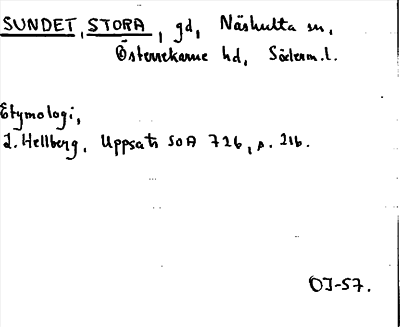 SUNDET, STORA, gd, Näshulta sn,
Österrekarne hd, Söderm.l.
Etymologi,
L. Hellberg, Uppsats SOA 726, s. 216.
OJ-57.